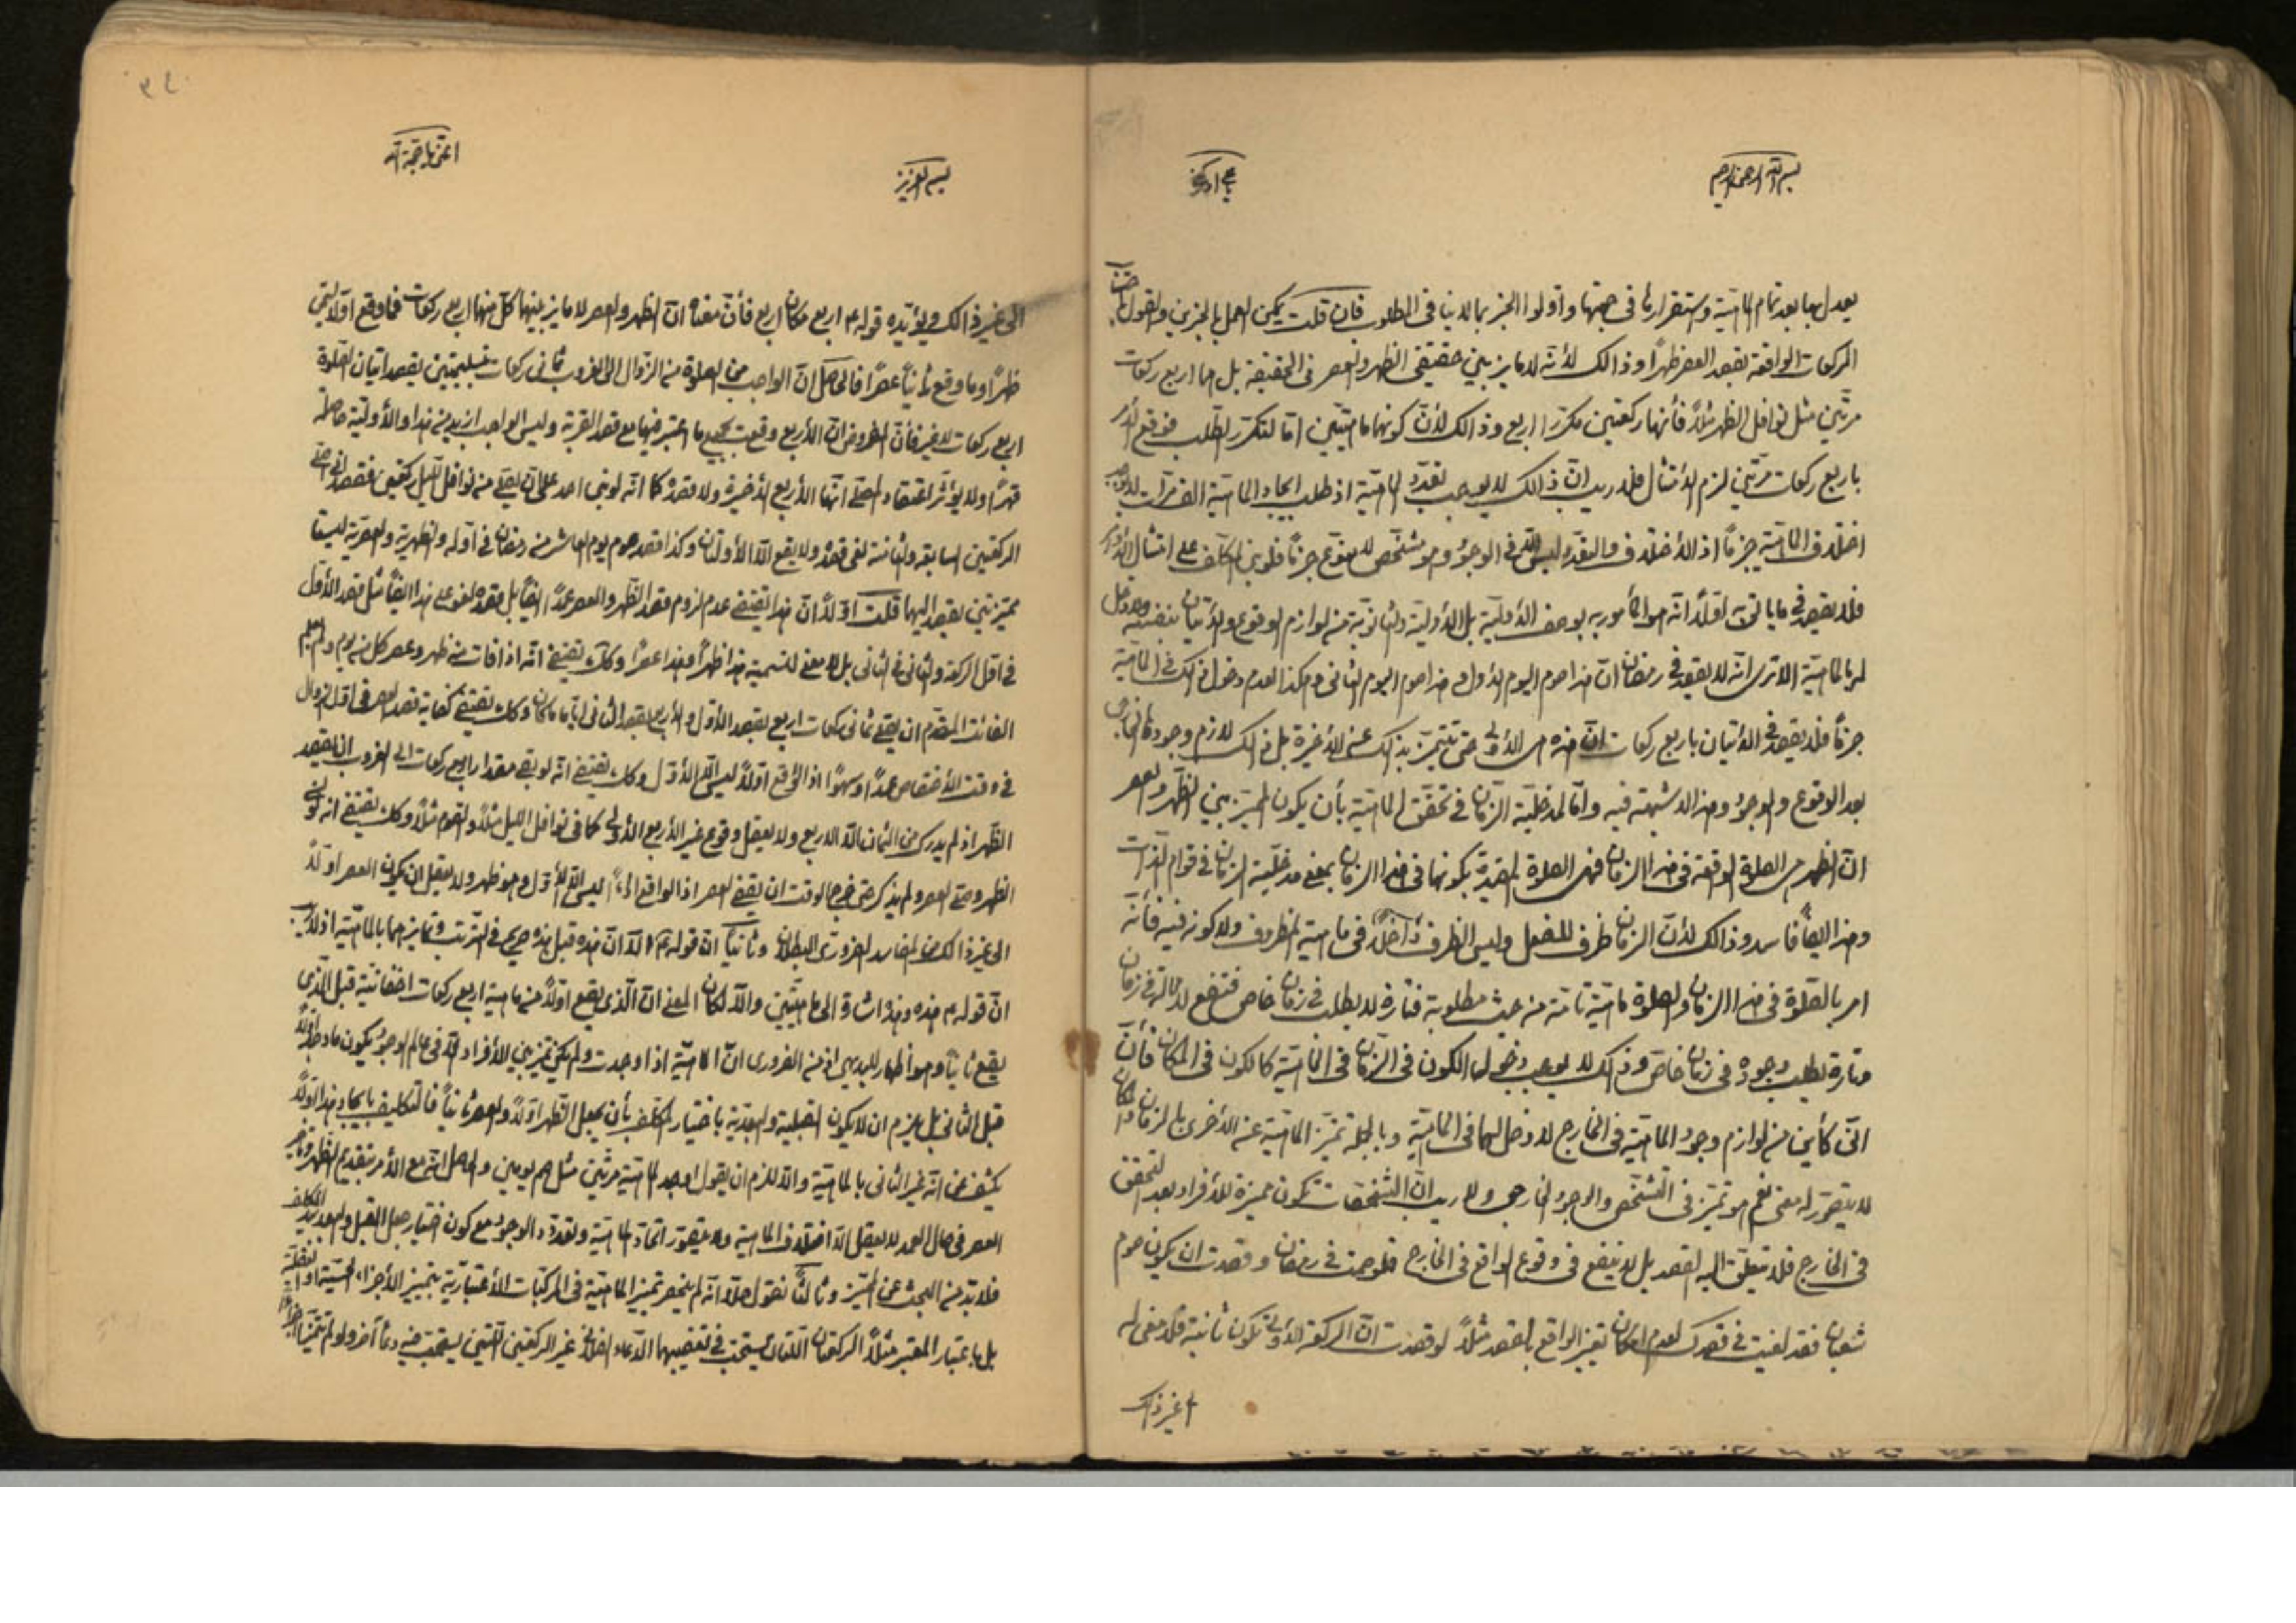 بسم الله الرحمن الرحيم
يعدل بها بعد تمام الماهية واستقرارها في جهتها وأولوا الخبر بما لا ينافي المطلوب فان قلت يمكن العمل بالخبرين والقول
الركعات الواقعة بقصد العصر ظهراً وذالك لأنّه لا مايز بين حقيقتي الظهر والعصر في الحقيقة بل هما اربع ركعات
مرتين مثل نوافل الظهر مثلاً فأنها ركعتين مكررا اربع وذالك لأنّ كونهما ماهيّتين امّا لتكرّر الطلب
باربع ركعات مرّتين لزم الامتثال فلا ريب انّ ذالك لا يوجب تعدّد الماهيّة اذ طلب ايجاد الماهية الف مرّات
اختلاف الماهيّة جزماً اذ الأختلاف والتعدّد ليس الّا في الوجود وهو مشخّص للمنوّع جزماً فلو بنى المكلف على امتثال
فلا يقصد في ما يأتي به اوّلاً انّه هو المأمور به بوصف الأوليّة بل الأوليّة والثانويّة من لوازم الوقوع والأتيان بنفسه ولا دخل
لها بالماهيّة الا ترى انّه لا يقصد في رمضان انّ هذا صوم اليوم الأول وهذا صوم اليوم الثاني وهكذا لعدم دخول ذالك في الماهيّة
جزماً فلا يقصد في الأتيان باربع ركعات انّ هذه هي الأولى حتى تتميّز بذالك عن الأخيرة بل ذالك لازم وجودها
بعد الوقوع والوجود وهذا لا شبهة فيه وامّا لمدخليّة الزمان في تحقّق الماهيّة بأن يكون المميز بين الظهر والعصر
انّ الظهر هي الصلوة الواقعة في هذا الزمان فهي الصلوة المقيدة بكونها في هذا الزمان بمعنى مدخليّة الزمان في قوام الذات
وهذا ايضاً فاسد وذالك لأنّ الزمان ظرف للفعل وليس الظرف داخلاً في ماهية المظروف ولا كونه فيه فأنّه
امر بالصّلوة في هذا الزمان والصلوة ماهيّة تامّة من حيث مطلوبة فتارة لا يطلب في زمان خاص في زمان
وتارة يطلب وجوده في زمان خاصّ وذالك لا يوجب دخول الكون في الزمان في الماهيّة كالكون في المكان فأنّ
لوازم وجود الماهيّة في الخارج لا دخل لهما في الماهيّة وبالجملة تميّز الماهيّة عن الأخرى بالزمان والمكان
لا يتصوّر له معنى نعم هو تميّز في التشخّص والوجود الخارجي ولا ريب انّ التشخّصات تكون مميزة للأفراد بعد التحقق
في الخارج فلا يتعلّق اليه القصد بل لا ينفع في وقوع الواقع في الخارج فلو صمت في رمضان وقصدت ان يكون صوم
شعبان فقد لغيت في قصدك لعدم امكان تغيّر الواقع بالقصد مثلاً لو قصدت انّ الركعة الأولى تكون ثانية فلا معنى له
الى غير ذالك
بسم العزيز
اغثني يا حجة الله
الى غير ذالك ويؤيّده قوله ع اربع مكان اربع فأنّ معناه انّ الظهر والعصر لا مايز بينهما كلّ منهما اربع ركعات فما وقع اوّلاً
ظهراً وما وقع ثانياً عصراً فالحاصل انّ الواجب من الصلوة من الزوال الى الغروب ثماني ركعات بتسليمتين يقصد اتيان الصلوة
اربع ركعات لا غير فأنّ المفروض انّ الأربع وقعت بجميع ما اعتبر فيها مع قصد القربة وليس الواجب ازيد من هذا والأوليّة حاصلة
قهراً ولا يؤثر اعتقاد المصلّي انّها الأربع الأخيرة ولا قصده كما انّه لو بنى احد على ان يصلّي من نوافل الليل ركعتين فقصد
الركعتين السابقة والثامنة لغى قصده ولا يقع الّا الأولتان وكذا قصد صوم يوم العاشر من رمضان في اوّله والظهرية والعصريّة ليستا
مميّزتين يقصد اليهما قلت اوّلاً انّ هذا يقتضي عدم لزوم قصد الظهر والعصر عمداً ايضاً بل قصده لغو على هذا ايضاً مثل قصد الأوّل
في اوّل الركعة والثاني في الثاني بل لا معنى لتسمية هذا ظهراً وهذا عصراً وكذا يقتضي انّه اذا فات منه ظهر وعصر كل من يوم ولم يعلم
الفائت المقدّم ان يصلّي ثماني ركعات اربع بقصد الأوّل والأربع بقصد الثاني ايّاً ما كان وكذا يقتضي كفاية قصد العصر في اوّل الزوال
في وقت الأختصاص عمداً وسهواً اذ الواقع اوّلاً ليس الّا الأوّل وكذا يقتضي انّه لو بقي مقدار اربع ركعات الى الغروب ان يقصد
الظهر اذ لم يدرك من الثمان الّا الاربع ولا يعقل وقوع غير الأربع الأولى كما في نوافل الليل مثلاً والصوم مثلاً وكذا يقتضي انه لو نسى
الظهر وصلّى العصر ولم يذكر حتى خرج الوقت ان يقضي العصر اذ الواقع اوّلاً ليس الّا الأوّل وهو ظهر ولا يعقل ان يكون العصر اوّلاً
الى غير ذالك من المفاسد الضروري البطلان وثانياً انّ قوله ع الّا انّ هذه قبل هذه صريح في الترتيب وتمايزهما بالماهيّة
انّ قوله ع هذه وهذه اشارة الى ماهيّتين والّا لكان المعنى انّ الّذي يقع اوّلاً من ماهية اربع ركعات قبل الّذي
يقع ثانياً وهو اظهار للبديهي اذ من الضروري انّ الماهيّة اذا وجدت ولم يكن تميز بين الأفراد الّا في عالم الوجود يكون ما وجد اوّلاً
قبل الثاني بل يلزم ان لا يكون القبلية والبعديّة باختيار المكلف بأن يجعل الظهر اوّلاً والعصر ثانياً فالتكليف بايجاد هذا اوّلاً
يكشف عن انّه غير الثاني بالماهيّة والّا للزم ان يقول اوجد الماهيّة مرّتين مثل صم يومين والحاصل انّ مع الأمر بتقديم الظهر وتأخير
العصر في حال العمد لا يعقل الّا اختلاف الماهية ولا يتصوّر اتحاد الماهيّة وتعدّد الوجود مع كون اختيار جعل القبل والبعد بيد المكلف
فلا بدّ من البحث عن المميّز وثالثاً نقول حلّاً انّه لم ينحصر تميز الماهيّة في المركّبات الأعتباريّة بتمييز الأجزاء الحسيّة او العقليّة
بل باعتبار المعتبر مثلاً الركعتان اللّتان يستحبّ في تعقيبهما الدّعاء الفلاني غير الركعتين اللّتين يستحب فيه دعاء آخر ولو لم يتميّزا